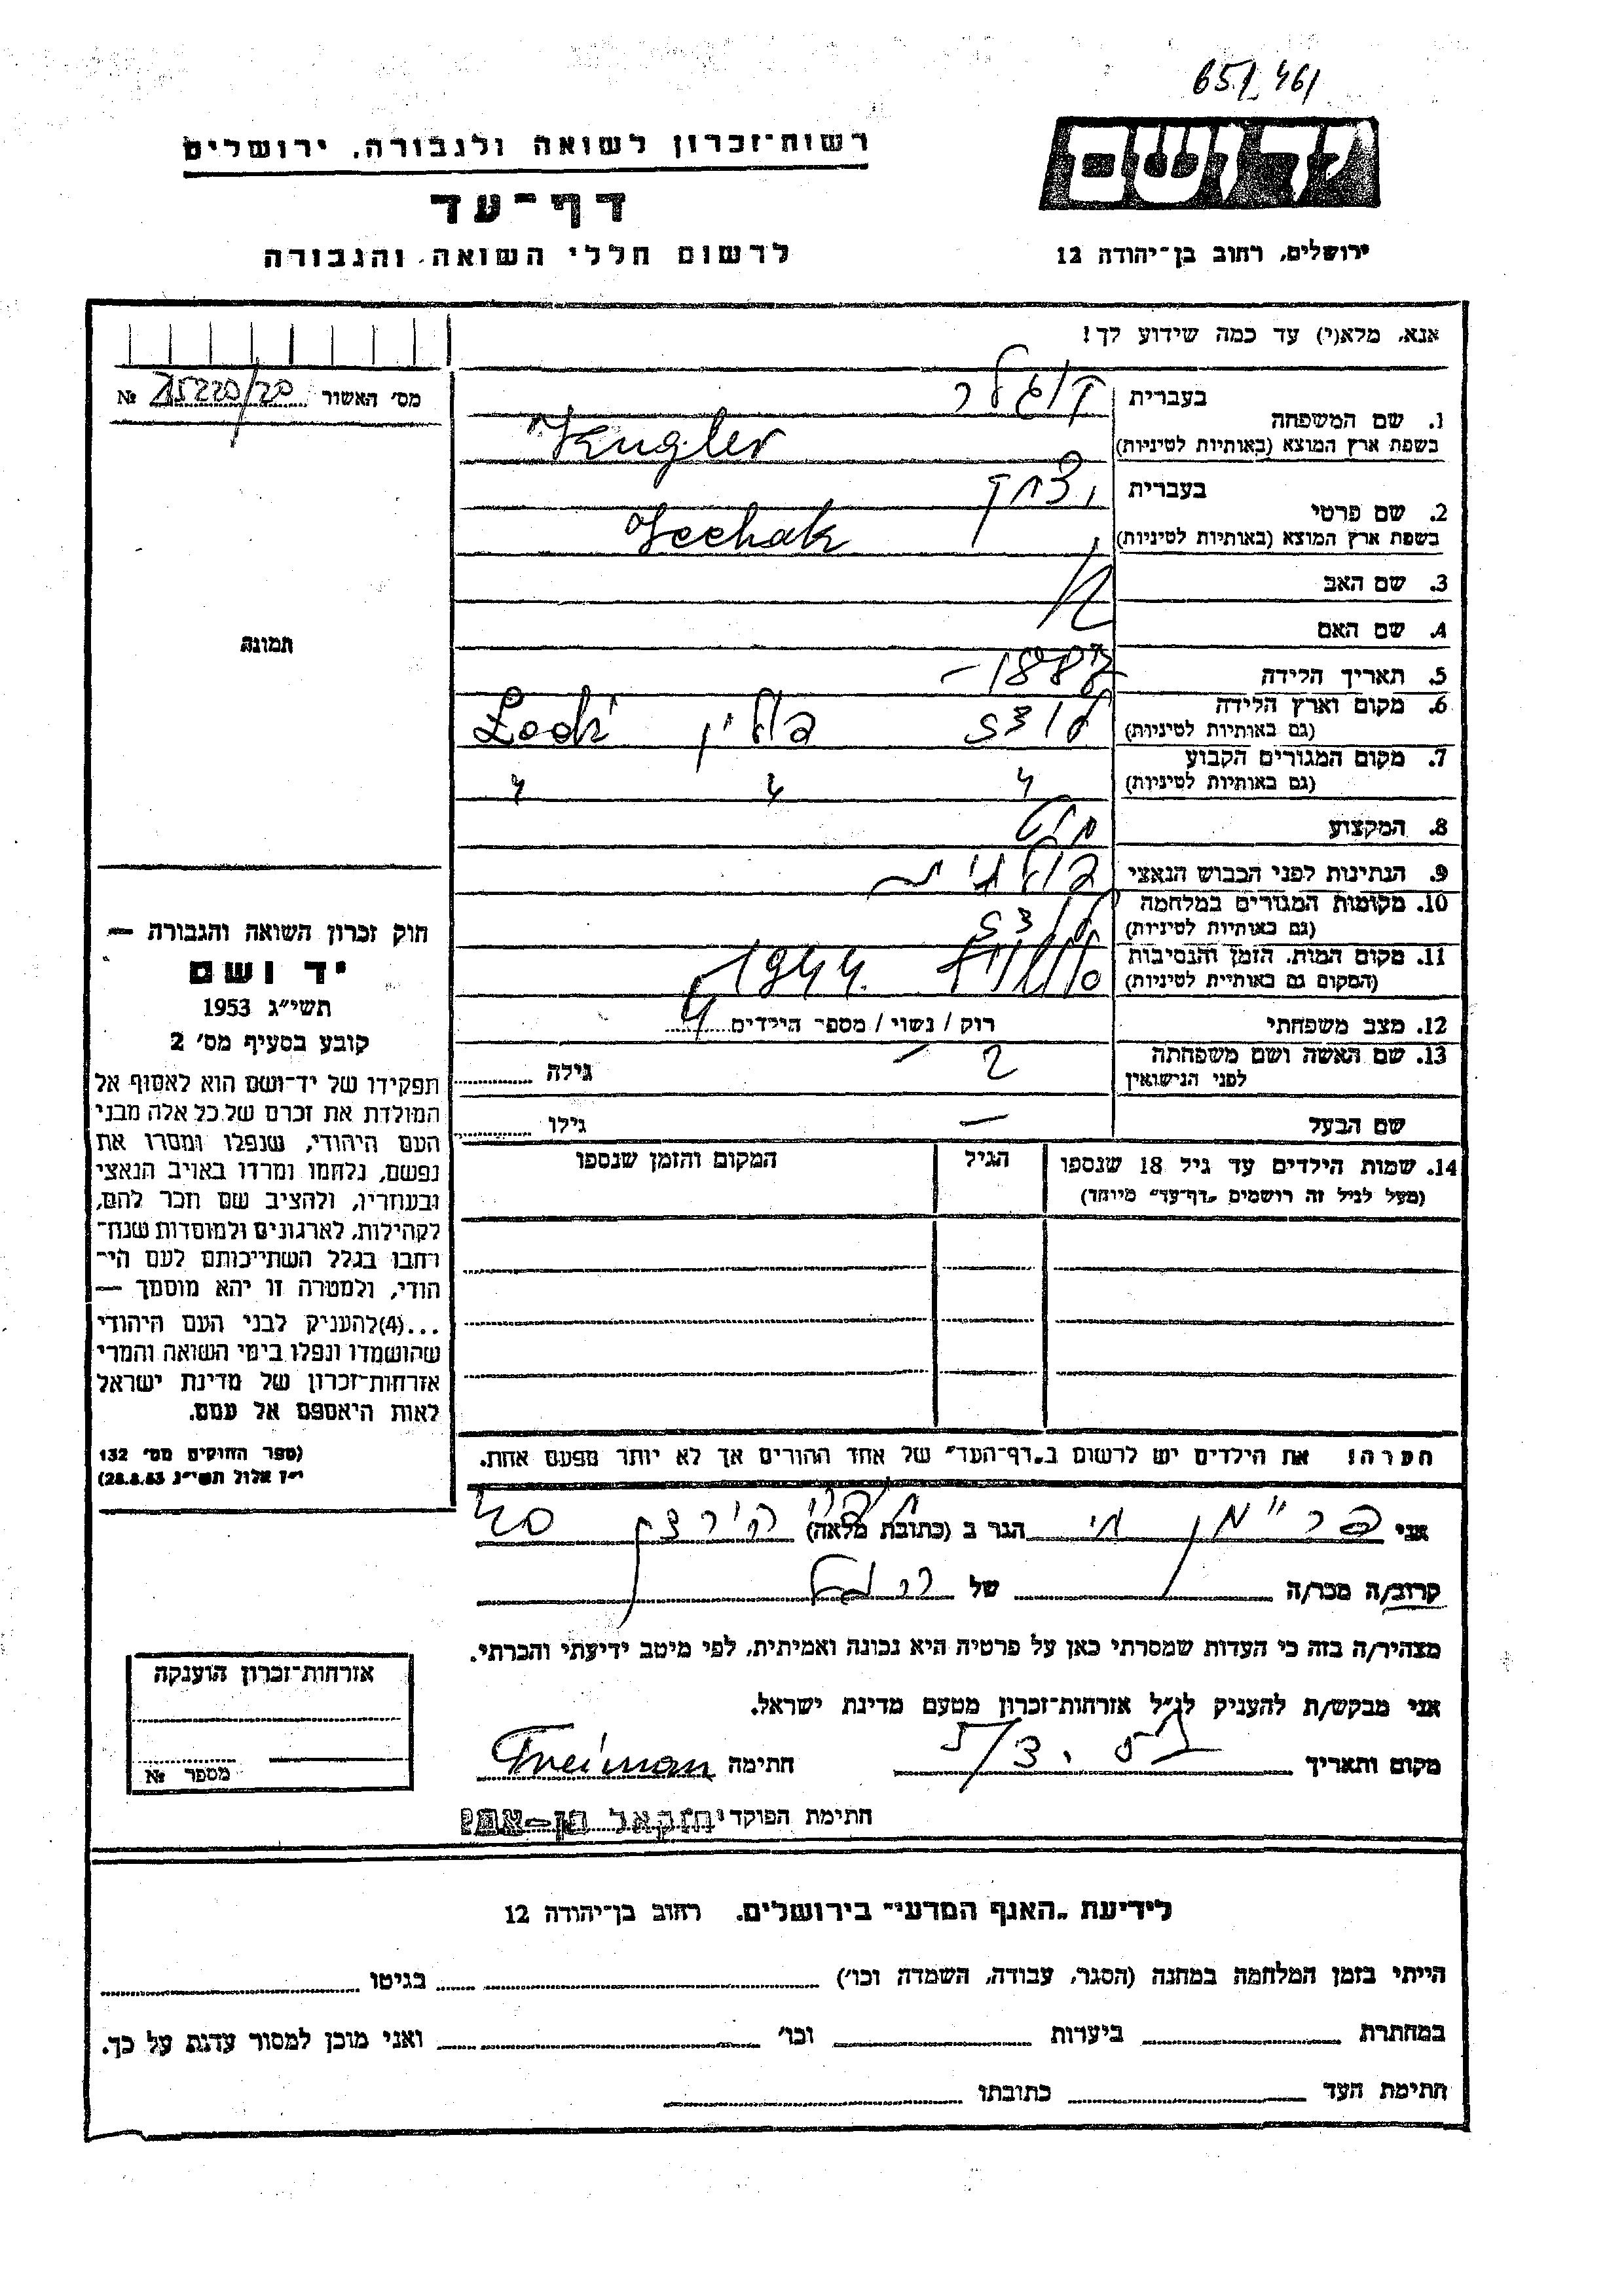 651/461
רשות־זכרון לשואה ולגבורה, ירושלים
דף־עד
לרשום חללי השואה והגבורה
יד ושם
ירושלים, רחוב בן־יהודה 12
אנא, מלא(י) עד כמה שידוע לך!
מס' האשור 25220/20 №
1. שם המשפחה
בעברית קוגלר
בשפת ארץ המוצא (באותיות לטיניות) Kugler
2. שם פרטי
בעברית יצחק
בשפת ארץ המוצא (באותיות לטיניות) Icchak
3. שם האב
4. שם האם
5. תאריך הלידה 1887 -
6. מקום וארץ הלידה
(גם באותיות לטיניות) לודז פולין Lodź
7. מקום המגורים הקבוע
(גם באותיות לטיניות) " " "
8. המקצוע
9. הנתינות לפני הכבוש הנאצי פולנית
10. מקומות המגורים במלחמה
(גם באותיות לטיניות) לודז
11. מקום המות, הזמן והנסיבות
(המקום גם באותיות לטיניות) 1944.
12. מצב משפחתי רוק / נשוי / מספר הילדים 4
13. שם האשה ושם משפחתה
לפני הנישואין גילה
שם הבעל — גילו
14. שמות הילדים עד גיל 18 שנספו
(מעל לגיל זה רושמים „דף־עד" מיוחד)
הגיל
המקום והזמן שנספו
הערה! את הילדים יש לרשום ב„דף־העד" של אחד ההורים אך לא יותר מפעם אחת.
תמונה
חוק זכרון השואה והגבורה —
יד ושם
תשי"ג 1953
קובע בסעיף מס' 2
תפקידו של יד־ושם הוא לאסוף אל
המולדת את זכרם של כל אלה מבני
העם היהודי, שנפלו ומסרו את
נפשם, נלחמו ומרדו באויב הנאצי
ובעוזריו, ולהציב שם וזכר להם,
לקהילות, לארגונים ולמוסדות שנח־
רבו בגלל השתייכותם לעם הי־
הודי, ולמטרה זו יהא מוסמך —
...(4)להעניק לבני העם היהודי
שהושמדו ונפלו בימי השואה והמרי
אזרחות־זכרון של מדינת ישראל
לאות היאספם אל עמם.
(ספר החוקים מס' 132
י"ז אלול תשי"ג 28.8.53)
אני פריימן הגר ב (כתובת מלאה)
קרוב/ה מכר/ה של
מצהיר/ה בזה כי העדות שמסרתי כאן על פרטיה היא נכונה ואמיתית, לפי מיטב ידיעתי והכרתי.
אני מבקש/ת להעניק לנ"ל אזרחות־זכרון מטעם מדינת ישראל.
מקום ותאריך חתימה Freiman
חתימת הפוקד יחזקאל בן-
אזרחות־זכרון הוענקה
מספר №
לידיעת „האגף המדעי" בירושלים. רחוב בן־יהודה 12
הייתי בזמן המלחמה במחנה (הסגר, עבודה, השמדה וכו') בגיטו
במחתרת ביערות וכו' ואני מוכן למסור עדות על כך.
חתימת העד כתובתו